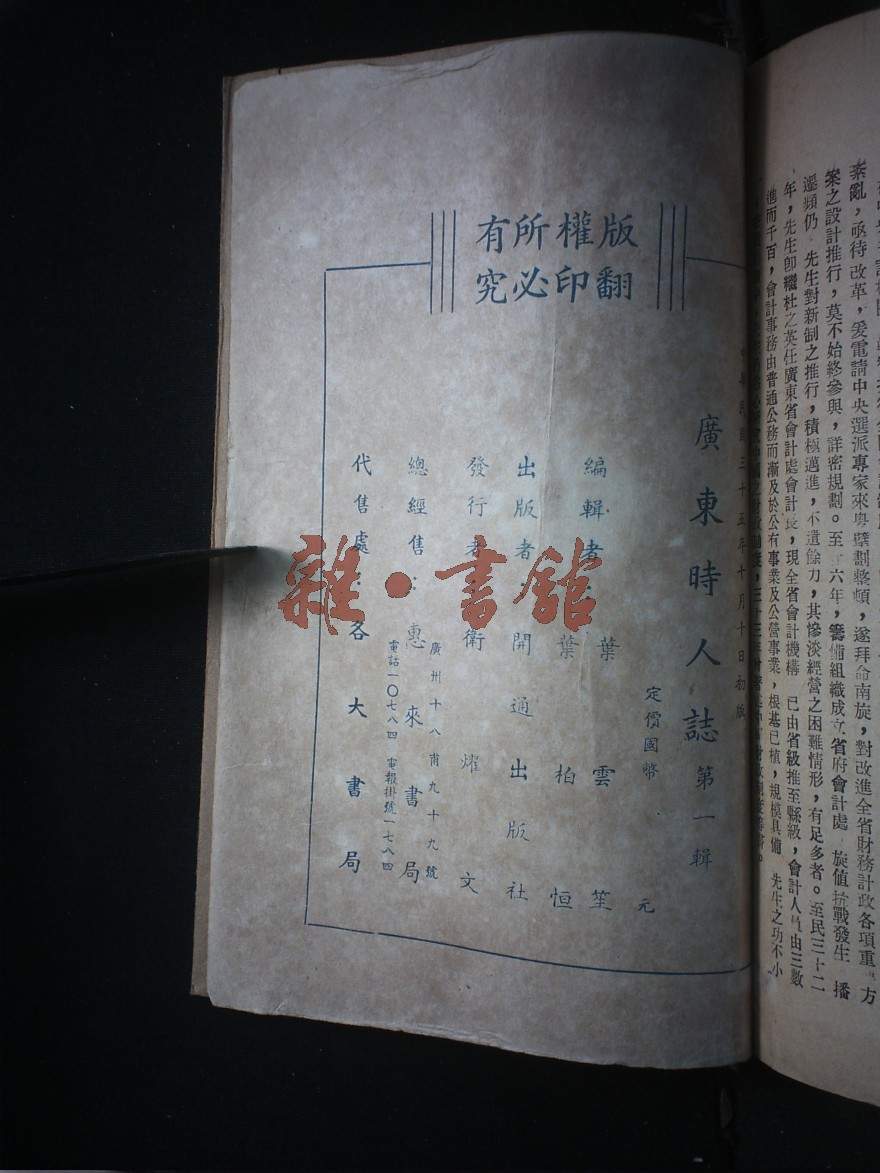 案亂，亟待改革，爰電請中央選派專家來粵擘劃整頓，遂拜命南旋，對改進全省財務計政各項重方
案之設計推行，莫不始終參與，詳密規劃。至六年，籌備組織成立省府會計處　旋值抗戰發生　播
遷頻仍　先生對新制之推行，積極邁進，不遺餘力，其慘淡經營之困難情形，有足多者。至民三十二
年，先生卽繼杜之英任廣東省會計處會計長，現全省會計機構　已由省級推至縣級，會計人由三數
進而千百，會計事務由普通公務而漸及於公有事業及公營事業，根基已植，規模具備　先生之功不小
版權所有
翻印必究
中華民國三十五年十月十日初版
廣東時人誌第一輯
定價國幣　元
編輯者：葉雲笙
葉柏恒
出版者　開通出版社
發行者　衛燿文
總經售：惠來書局
廣州十八甫九十九號
電話一〇七八四　電報掛號一七八四
代售處：各大書局
雜·書館